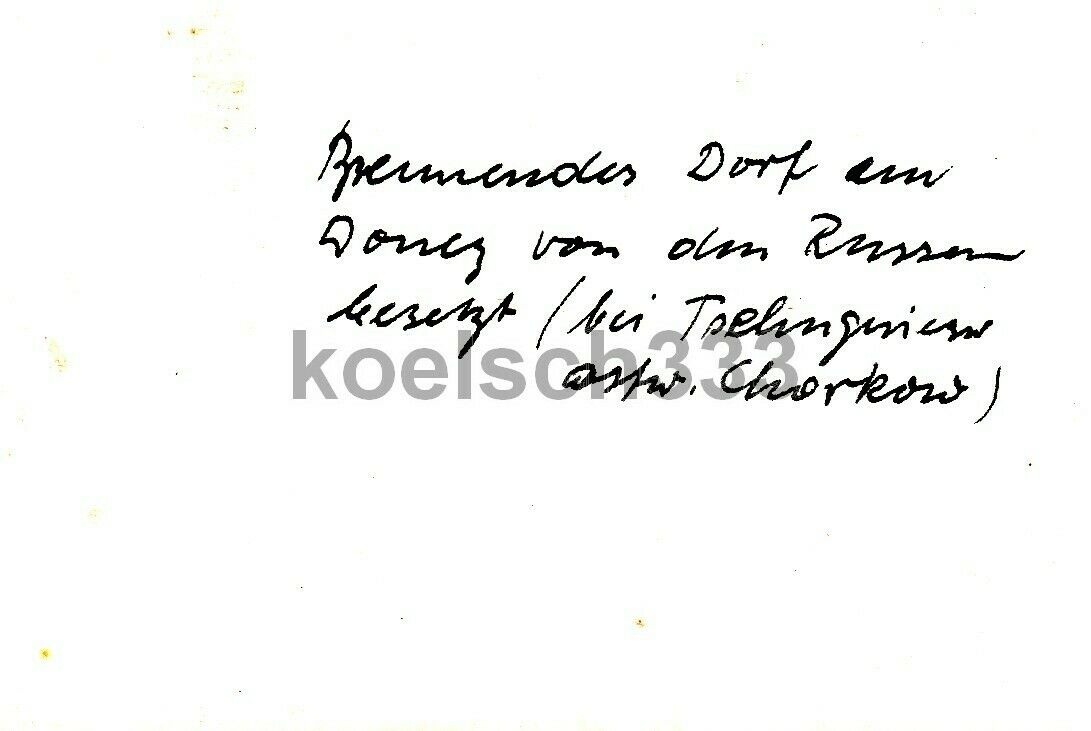 Brennendes Dorf am
Donez von den Russen
besetzt (bei
koelsch333
ostw. Charkow)